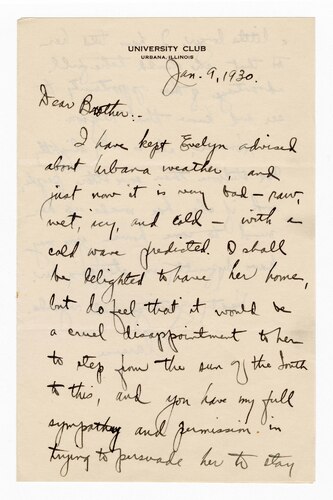 UNIVERSITY CLUB
URBANA, ILLINOIS
Jan. 9, 1930.
Dear Brother:-
I have kept Evelyn advised
about Urbana weather, and
just now it is very bad - raw,
wet, icy, and cold - with a
cold wave predicted. I shall
be delighted to have her home,
but do feel that it would be
a cruel disappointment to her
to step from the sun of the South
to this, and you have my full
sympathy and permission in
trying to persuade her to stay